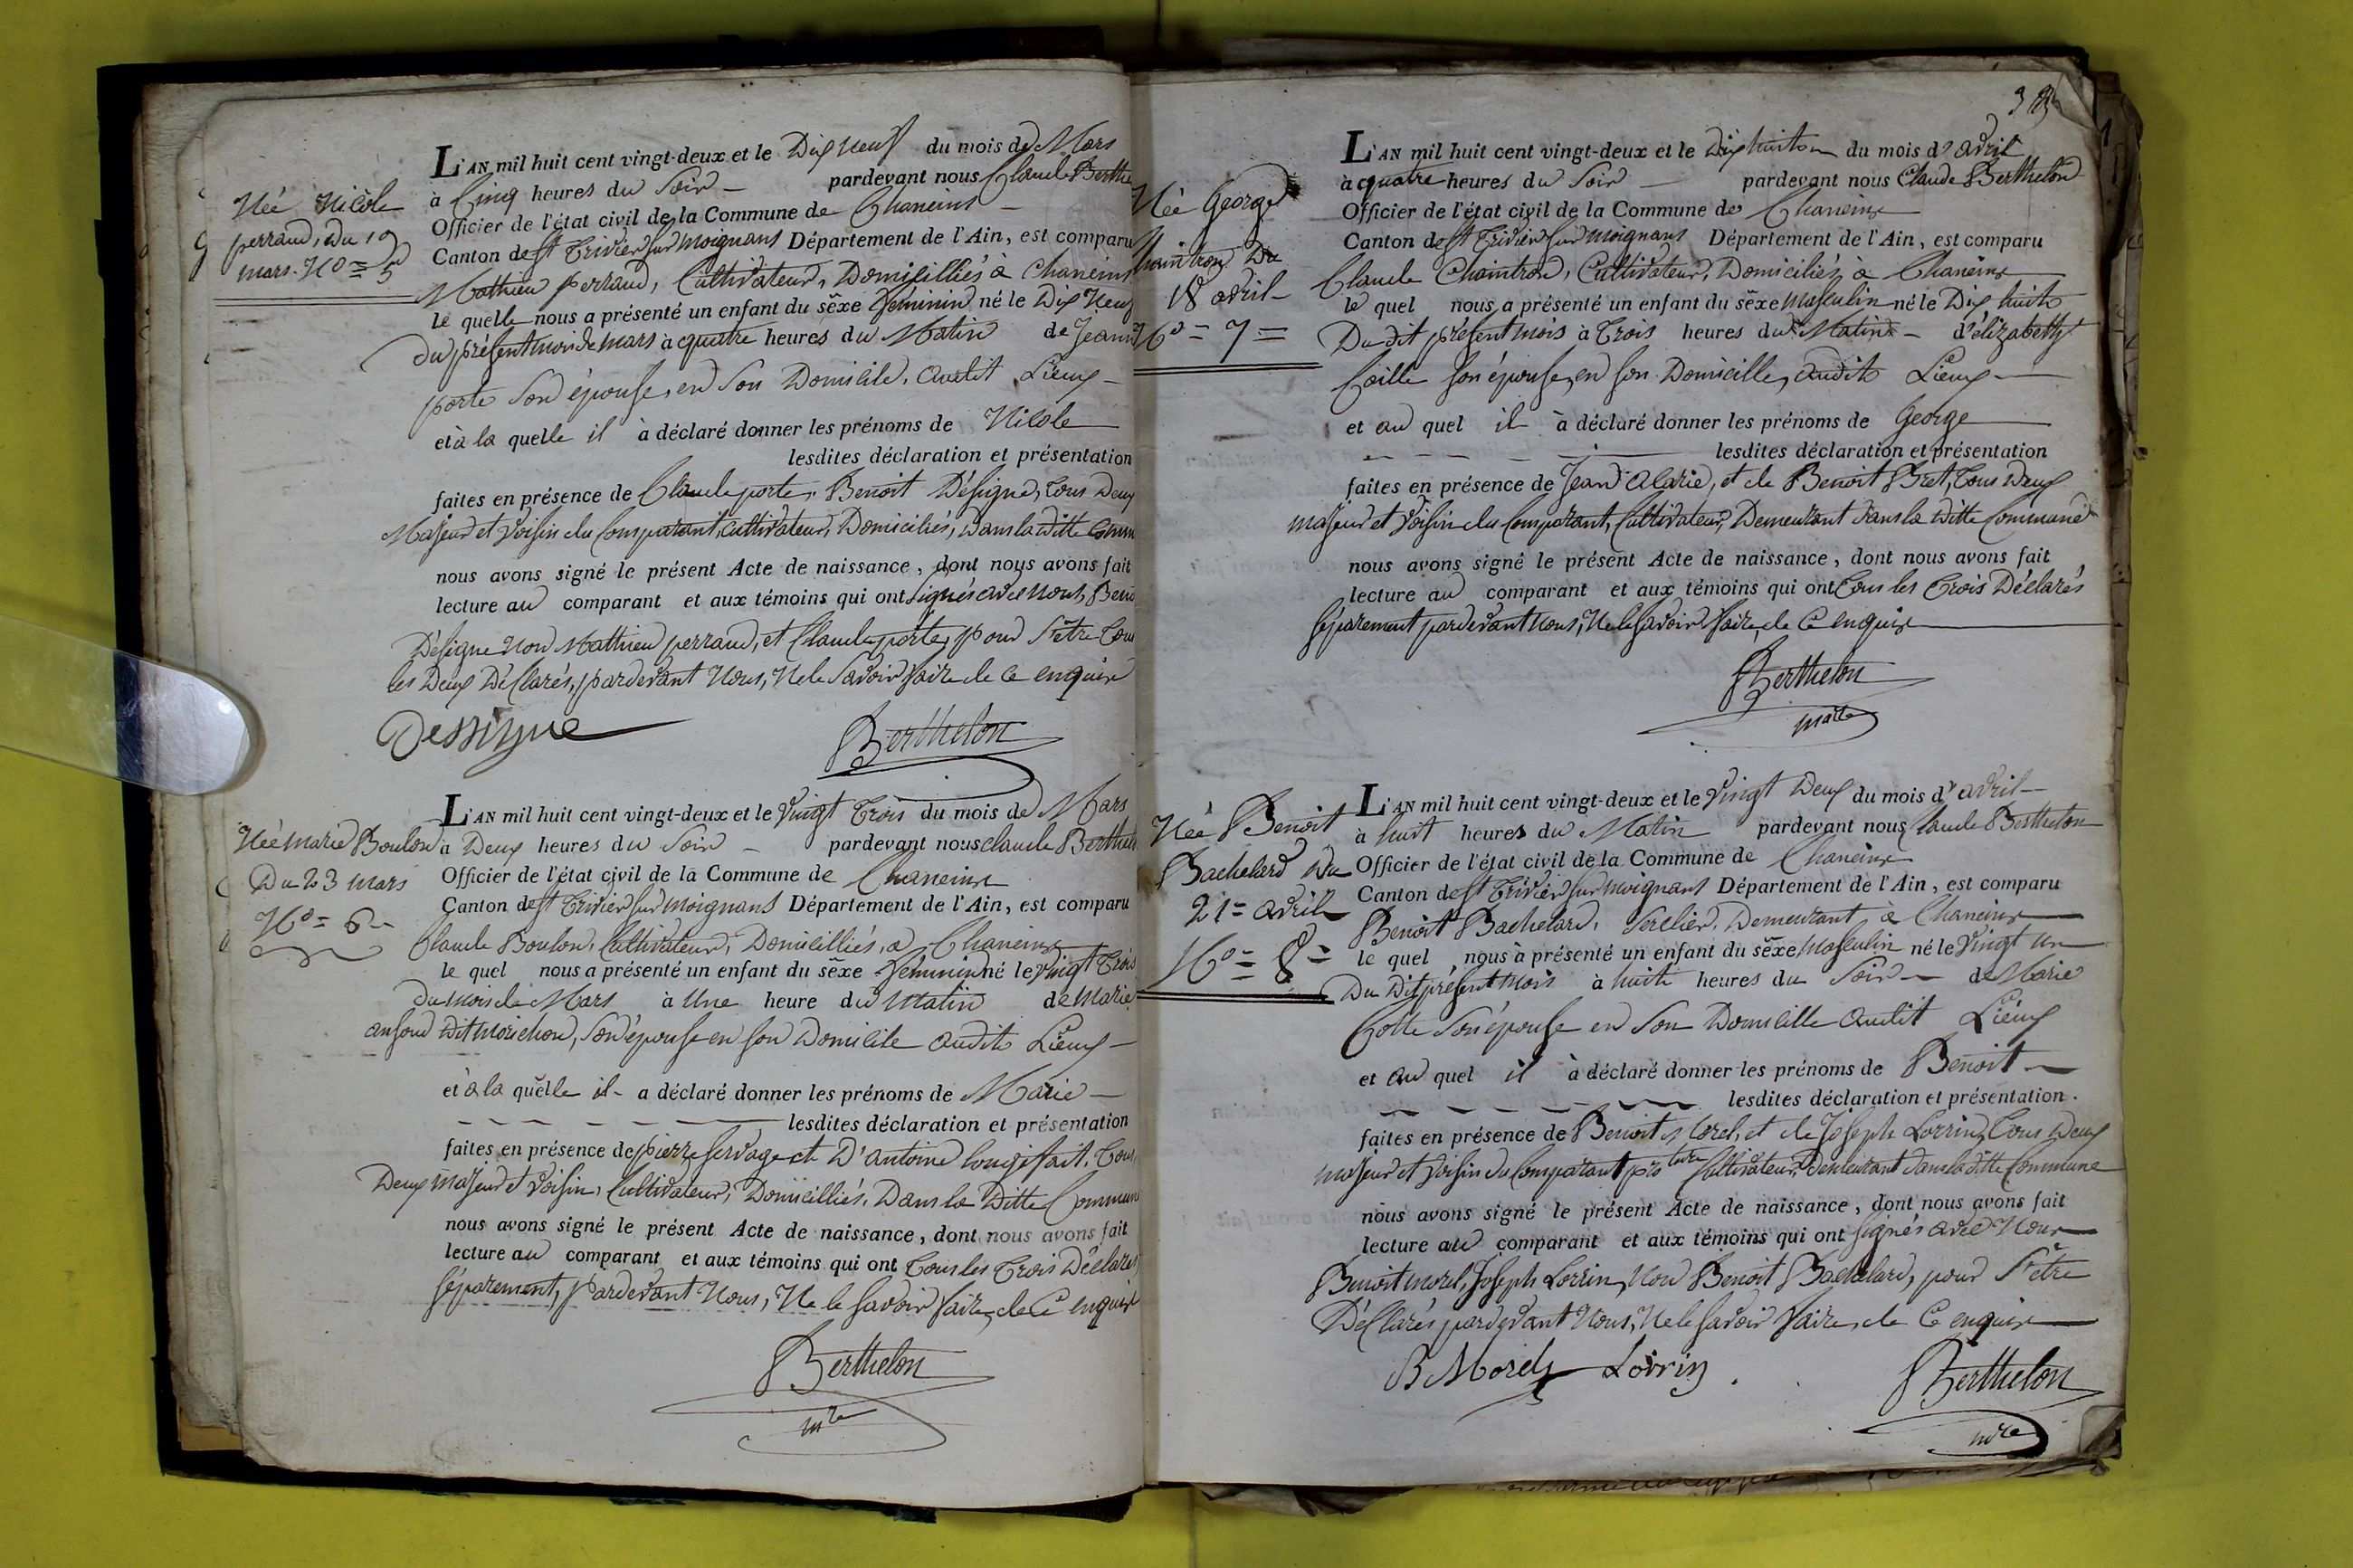 Née Nicole
perraud, Du 19
mars. No = 5
L'AN mil huit cent vingt-deux et le Dix Neuf du mois de Mars
à Cinq heures du Soir - pardevant nous Claude Berthe
Officier de l'état civil de la Commune de Chaneins
Canton de St Trivier sur moignans Département de l'Ain, est comparu
Mathieu perraud, Cultivateur, Domicilliés à Chaneins
le quelle nous a présenté un enfant du sexe féminin né le Dix Neuf
du présent mois de mars à quatre heures du Matin de Jeanne
porte Son épouse, en Son Domicile, audit Lieux -
et à la quelle il à déclaré donner les prénoms de Nicole
lesdites déclaration et présentation
faites en présence de Claude porte, Benoit Désigne, tous Deux
Majeur et Voisin du Comparant, Cultivateur, Domiciliés, Dans la ditte Comm
nous avons signé le présent Acte de naissance, dont nous avons fait
lecture au comparant et aux témoins qui ont signés avec nous, Beno
Désigne Non Mathieu perraud, et Claude porte, pour S'être tous
les Deux Déclarés, pardevant Nous, Ne le Savoir faire de ce enquis
Dessigne Berthelon
Née Marie Boulon
Du 23 mars
No = 6
L'AN mil huit cent vingt-deux et le Vingt Trois du mois de Mars
à Deux heures du Soir - pardevant nous claude Berthel
Officier de l'état civil de la Commune de Chaneins
Canton de St Trivier sur moignans Département de l'Ain, est comparu
Claude Boulon, Cultivateur, Domicilliés, a Chaneins
le quel nous a présenté un enfant du sexe féminin né le Vingt Trois
du mois de Mars à Une heure du Matin de Marie
dit Morichon, Son épouse en Son Domicile audit Lieux -
et à la quelle il - a déclaré donner les prénoms de Marie -
lesdites déclaration et présentation
faites en présence de pierre Servage et D'antoine Tous
Deux majeur et Voisin, Cultivateur, Domicilliés, Dans la Ditte Commune
nous avons signé le présent Acte de naissance, dont nous avons fait
lecture au comparant et aux témoins qui ont Tous les Trois Déclarés
Séparement, pardevant Nous, Ne le Savoir faire, de Ce enquis
Berthelon
mre
Née George
Chaintron Du
18 avril -
No = 7 =
L'AN mil huit cent vingt-deux et le Dix huit du mois d'avril
à quatre heures du Soir - pardevant nous Claude Berthelon
Officier de l'état civil de la Commune de Chaneins
Canton de St Trivier sur moignans Département de l'Ain, est comparu
Claude Chaintron, Cultivateur, Domiciliés, à Chaneins
le quel nous a présenté un enfant du sexe Masculin né le Dix huit
Du dit présent mois à Trois heures du Matin - d'élizabeth
Caille Son épouse, en Son Domicille, audit Lieux
et au quel il à déclaré donner les prénoms de George
lesdites déclaration et présentation
faites en présence de Jean Alarie, et de Benoit Bret, tous Deux
majeur et Voisin du Comparant, Cultivateur, Demeurant dans la Ditte Commune
nous avons signé le présent Acte de naissance, dont nous avons fait
lecture au comparant et aux témoins qui ont tous les Trois Déclarés
séparement pardevant Nous, Ne le Savoir faire, de Ce enquis
Berthelon
maire
Née Benoit
Bachelard Du
21 = avril
No = 8 =
L'AN mil huit cent vingt-deux et le Vingt Deux du mois d'avril -
à huit heures du Matin pardevant nous Claude Berthelon
Officier de l'état civil de la Commune de Chaneins
Canton de St Trivier sur moignans Département de l'Ain, est comparu
Benoit Bachelard, Demeurant, à Chaneins
le quel nous à présenté un enfant du sexe Masculin né le Vingt un
Du Dit présent Mois à huit heures du Soir - de Marie
Cotte Son épouse en Son Domicille audit Lieux
et au quel il à déclaré donner les prénoms de Benoit -
lesdites déclaration et présentation.
faites en présence de Benoit Morel, et de Joseph Lorrin, Tous Deux
majeur et Voisin du Comparant Cultivateur, demeurant dans la ditte Commune
nous avons signé le présent Acte de naissance, dont nous avons fait
lecture au comparant et aux témoins qui ont signés avec Nous
Benoit Morel, Joseph Lorrin, Non Benoit Bachelard, pour S'être
Déclarés pardevant Nous, Ne le Savoir faire, de Ce enquis
B Morel Lorrin Berthelon
mre